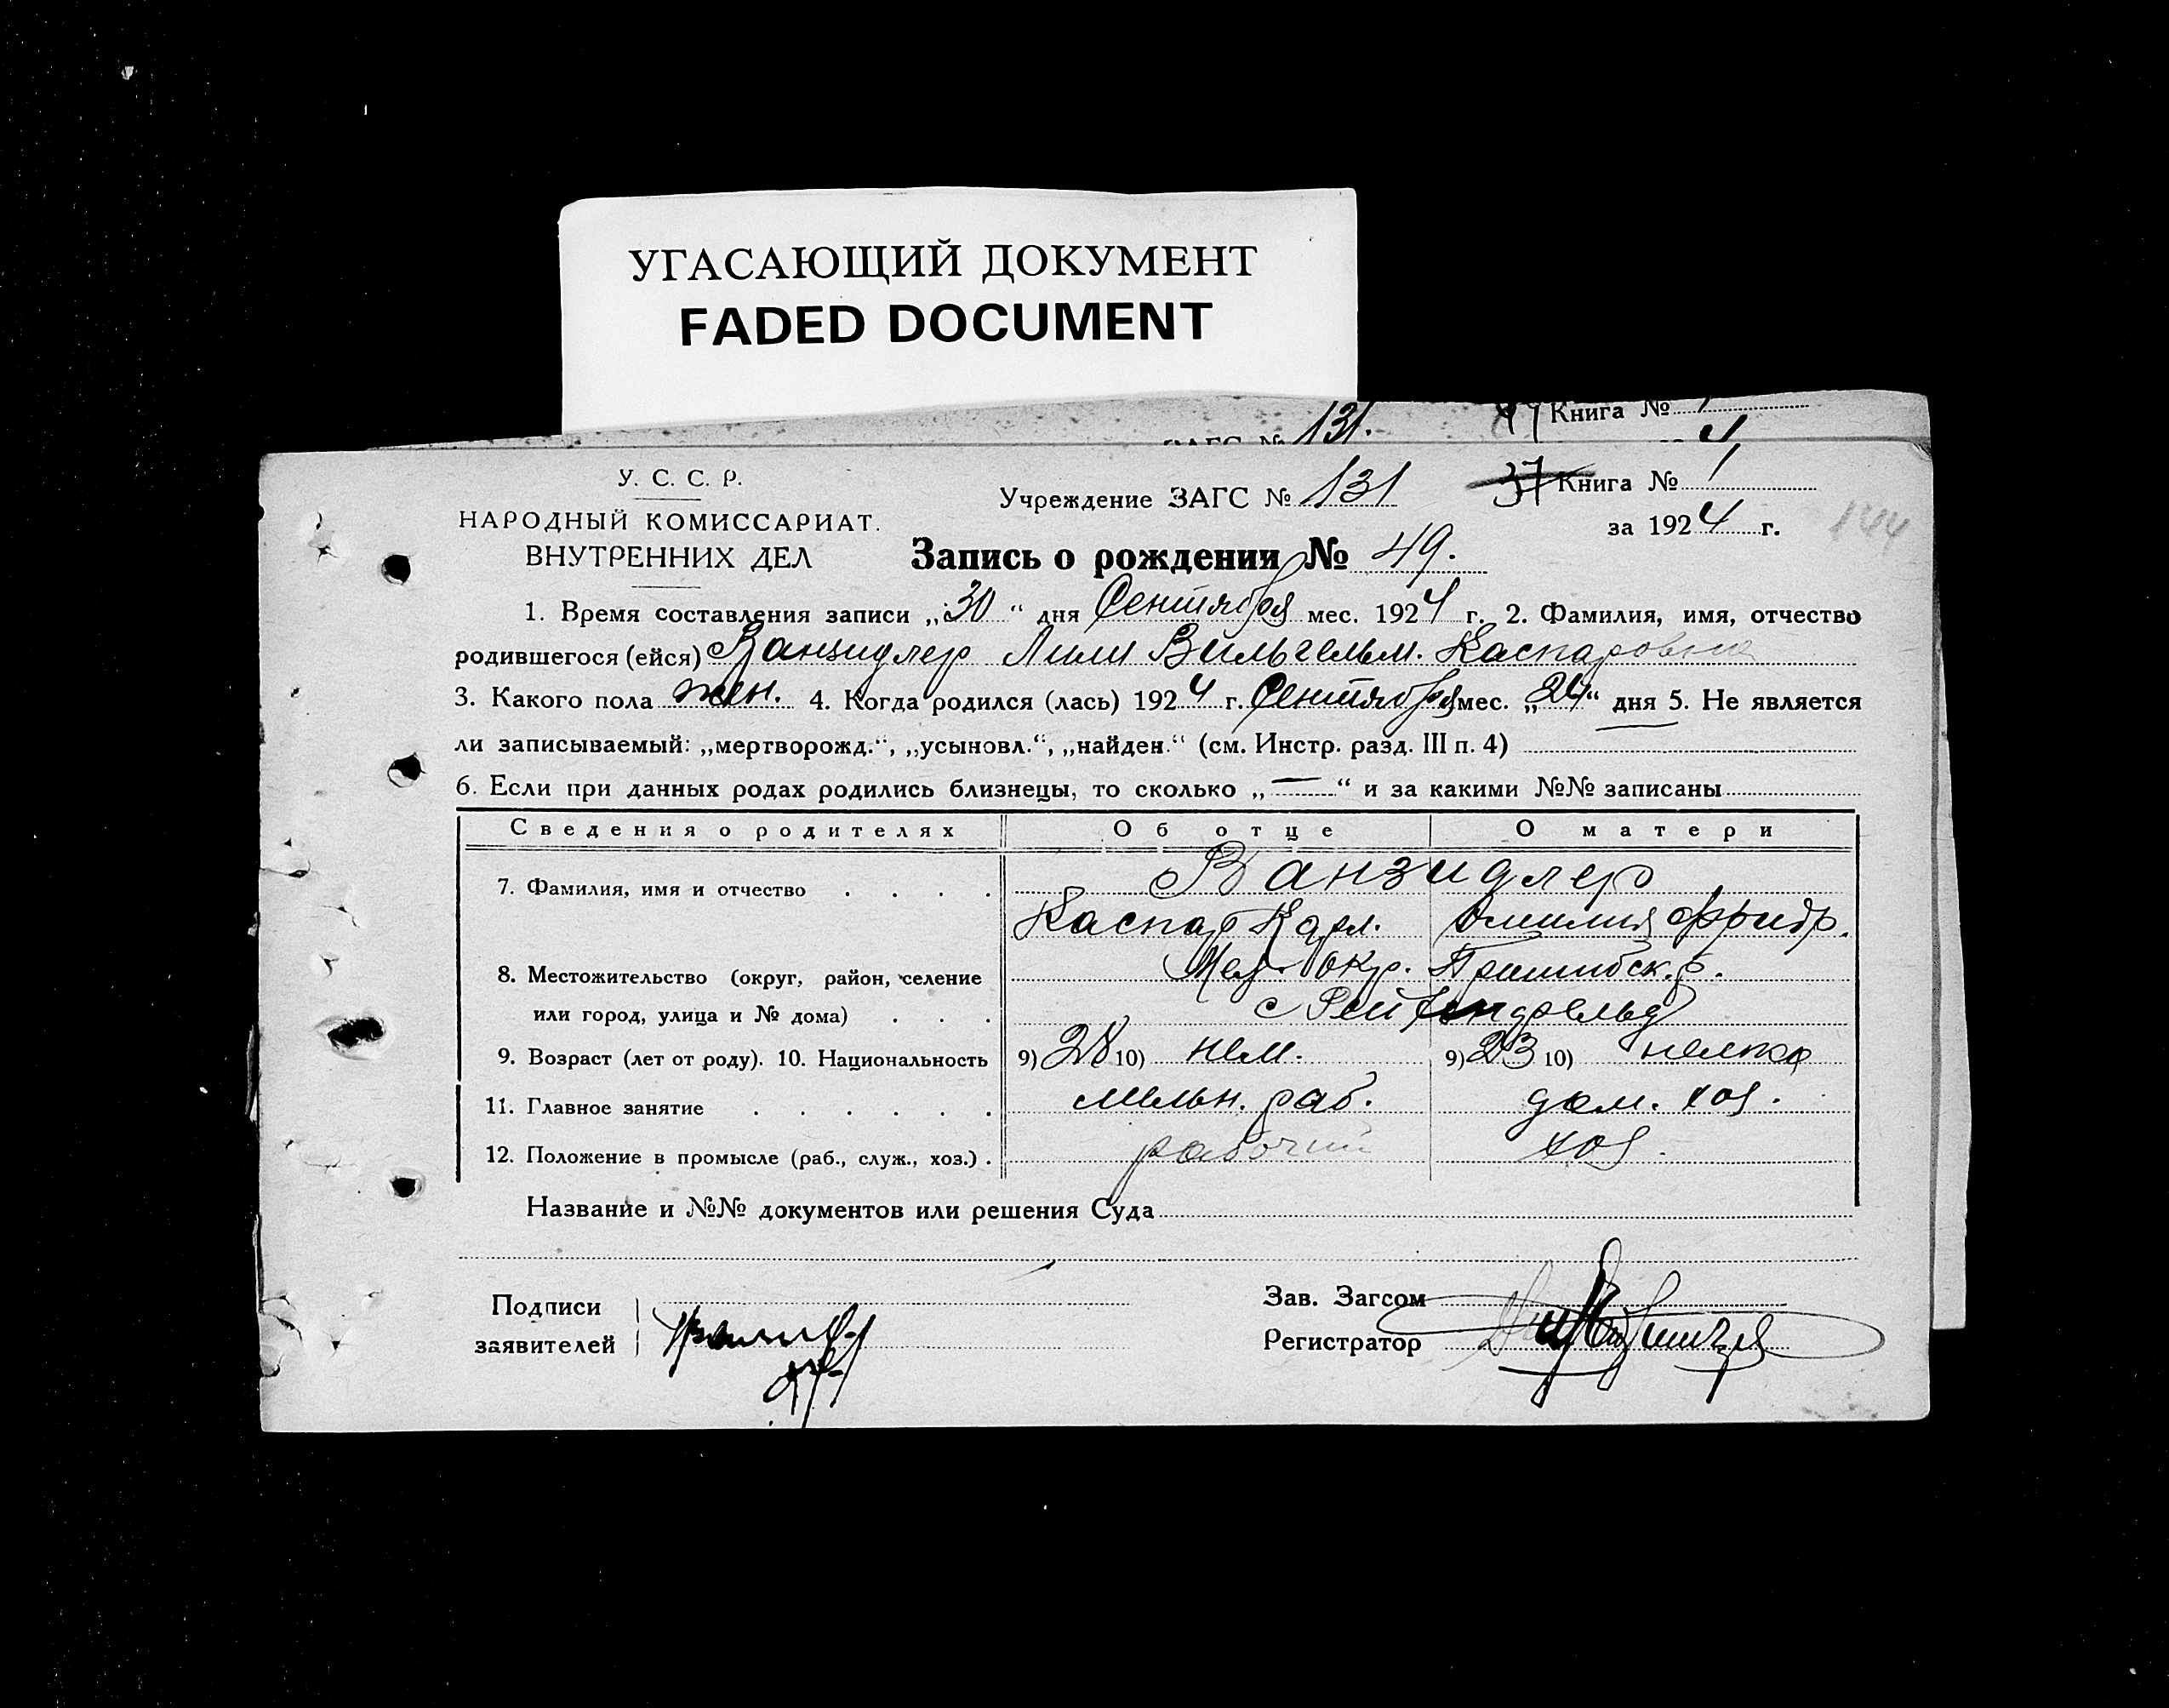 УГАСАЮЩИЙ ДОКУМЕНТ
FADED DOCUMENT
ЗАГС № 131. Книга №
У. С. С. Р.
НАРОДНЫЙ КОМИССАРИАТ.
ВНУТРЕННИХ ДЕЛ
Учреждение ЗАГС № 131
37 Книга № 1
за 1924 г.
144
Запись о рождении № 49.
1. Время составления записи „30“ дня Сентября мес. 1924 г. 2. Фамилия, имя, отчество
родившегося (ейся) Ванзидлер Лили Вильгельм. Каспаровна
3. Какого пола жен. 4. Когда родился (лась) 1924 г. Сентября мес. „24“ дня 5. Не является
ли записываемый: „мертворожд.“, „усыновл.“, „найден.“ (см. Инстр. разд. III п. 4)
6. Если при данных родах родились близнецы, то сколько „—“ и за какими №№ записаны
Сведения о родителях Об отце О матери
7. Фамилия, имя и отчество . . . . Ванзидлер
Каспар Карл. Эмилия Фридр.
8. Местожительство (округ, район, селение Мел. окр. Пришибск. р.
или город, улица и № дома) . . . с Рейхенфельд
9. Возраст (лет от роду). 10. Национальность 9) 28 10) нем. 9) 23 10) немка
11. Главное занятие . . . . . . мельн. раб. дом. хоз.
12. Положение в промысле (раб., служ., хоз.) . рабочий хоз.
Название и №№ документов или решения Суда
Подписи
заявителей
Зав. Загсом
Регистратор